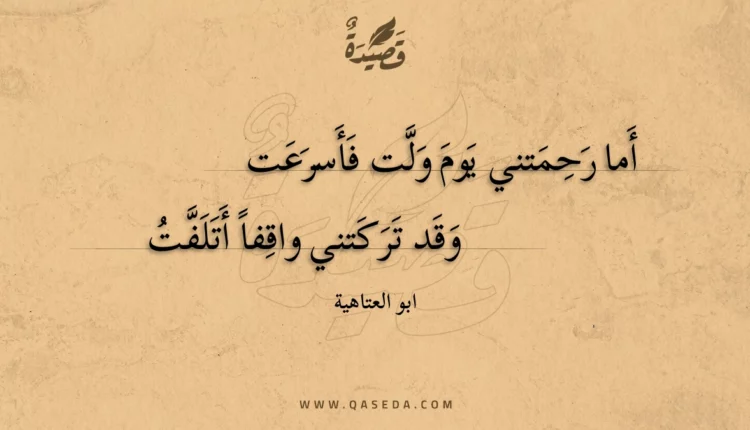 قَصِيدَةٌ
أَما رَحِمَتني يَومَ وَلَّت فَأَسرَعَت
وَقَد تَرَكَتني واقِفاً أَتَلَفَّتُ
ابو العتاهية
WWW.QASEDA.COM